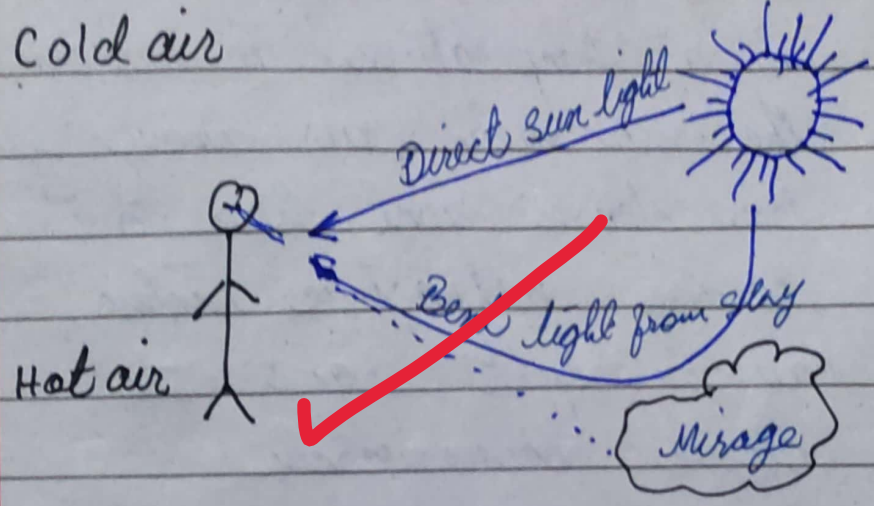 Cold air
Direct sun light
Bent light from sky
Hot air
Mirage